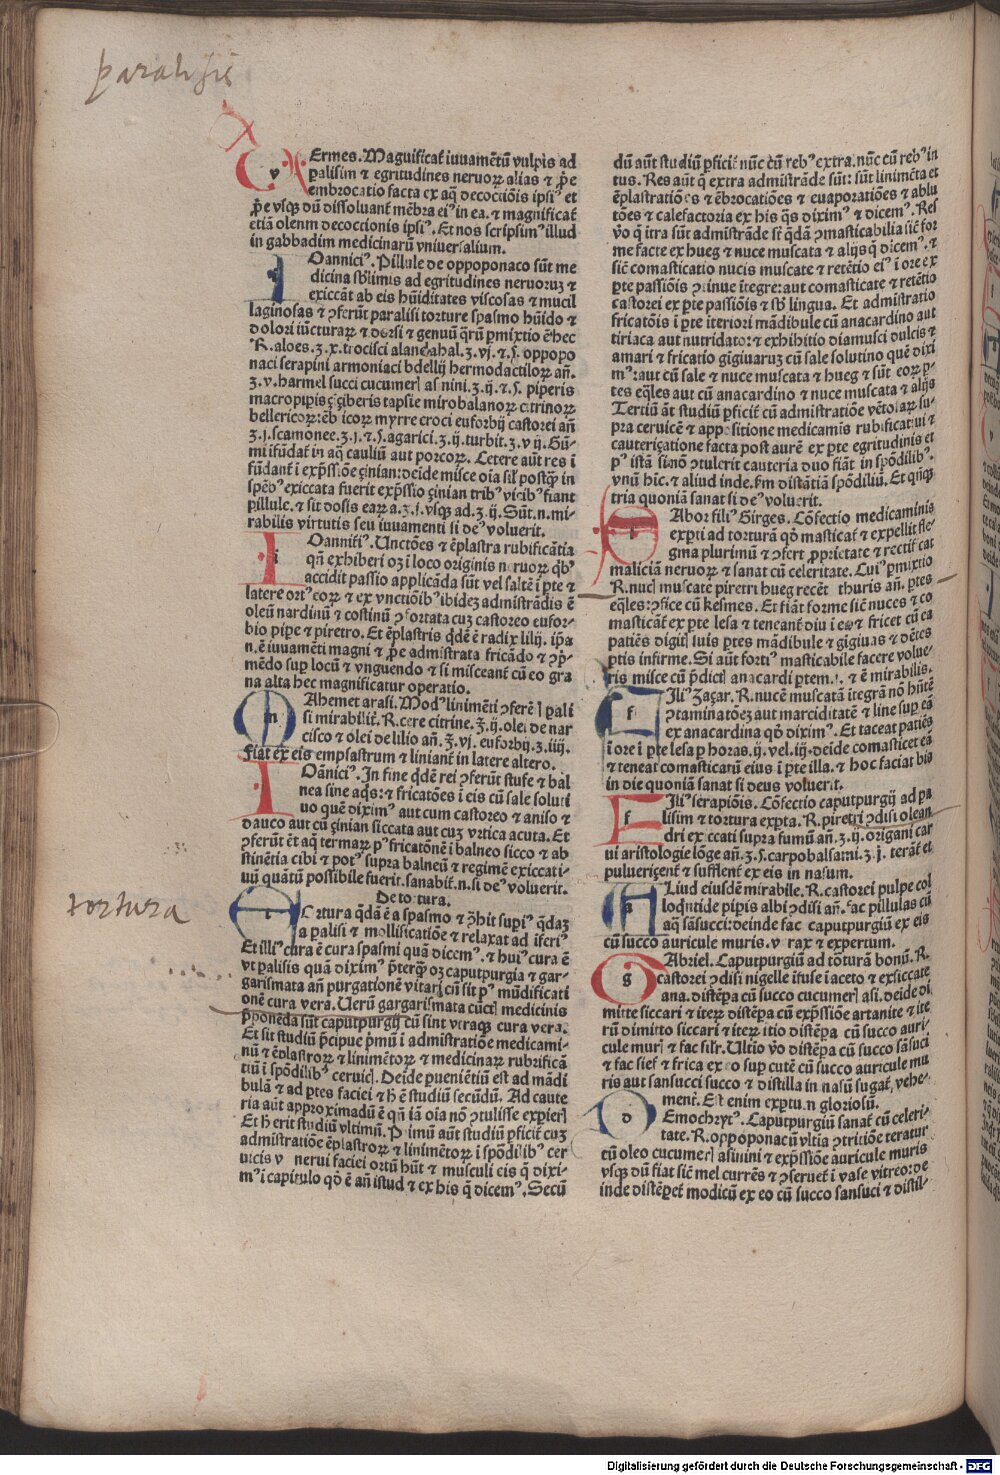 paralisis
Ermes. Magnificat᷒ iuuamētū vulpis ad
palisim ⁊ egritudines neruoꝝ alias ⁊ ꝓe
embrocatio facta ex aq̄ decoctiōis ipsiꝰ et
ꝓe vsqꝫ dū dissoluant᷒ mēbra eiꝰ in ea. ⁊ magnificat᷒
etiā olenm decoctionis ipsiꝰ. Et nos scripsimꝰ illud
in gabbadim medicinarū vniuersalium.
Oanniciꝰ. Pillule de oppoponaco sūt me
dicina sb̄limis ad egritudines neruoruꝫ ⁊
exiccāt ab eis hūiditates viscosas ⁊ mucil
laginosas ⁊ ꝯferūt paralisi torture spasmo hūido ⁊
dolori iūcturaꝝ ⁊ dorsi ⁊ genuū q̄rū ꝑmixtio ē hec
R. aloes.ʒ.x. trocisci alandahal.ʒ.vj.⁊.ſ. oppopo
naci serapini armoniaci bdellij hermodactiloꝝ an̄.
ʒ.v. harmel succi cucumeꝝ asinini.ʒ.ij.⁊.ſ. piperis
macropipis çīçiberis tapsie mirobalanoꝝ citrinoꝝ
bellericoꝝ: ēblicoꝝ myrre croci euforbij castorei an̄
ʒ.j. scamonee.ʒ.j.⁊.ſ. agarici.ʒ.ij. turbit.ʒ.vij. Gū-
mi ifūdat᷒ in aq̄ cauliū aut porcoꝝ. Cetere aūt res ī
fūdant᷒ ī exp̄ssiōe çinian: deīde misce oīa sil᷒ postq̄ in
spēbꝰ exiccata fuerit exp̄ssio çinian tribꝰ vicibꝰ fiant
pillule. ⁊ sit dosis earꝝ a.ʒ.j. vsqꝫ ad.ʒ.ij. Sūt.n. mi-
rabilis virtutis seu iuuamenti si deꝰ voluerit.
Oanniciꝰ. Vnctōes ⁊ ēplastra rubificātia
qn̄ exhiberi oꝫ ī loco originis neruoꝝ q̄bꝰ
accidit passio applicāda sūt vel saltē ī pte ⁊
latere ortꝰ eoꝝ ⁊ ex vnctiōibꝰ ibideꝫ admistrādis ē
oleū nardinū ⁊ costinū ꝯfortata cuꝫ castoreo eufor-
bio pipe ⁊ piretro. Et ēplastris q̄dē ē radix lilij. ip̄a
n. ē iuuamēti magni ⁊ ꝓe admistrata fricādo ⁊ ꝯp̄-
mēdo sup locū ⁊ vnguendo ⁊ si misceant᷒ cū eo gra
na alta hec magnificatur operatio.
Ahemet arasi. Modꝰ linimēti ꝯferē! pali
si mirabilit᷒. R. cere citrine.℥.ij. olei de nar
cisco ⁊ olei de lilio an̄.℥.vj. euforbij.ʒ.iiij.
fiat ex eis emplastrum ⁊ liniant᷒ in latere altero.
Oāniciꝰ. In fine q̄dē rei ꝯferūt stufe ⁊ bal
nea sine aq̄s: ⁊ fricatōes ī eis cū sale soluti
uo quē diximꝰ aut cum castoreo ⁊ aniso ⁊
dauco aut cū çinian siccata aut cuꝫ vrtica acuta. Et
ꝯferūt ēt aq̄ termaꝝ pꝰ fricatōnē ī balneo sicco ⁊ ab
stinētia cibi ⁊ potꝰ supra balneū ⁊ regimē exiccati-
uū quātū possibile fuerit. sanabit᷒.n. si deꝰ voluerit.
De tortura.
tortura
Ortura q̄dā ē a spasmo ⁊ ꝓhibit supiꝰ q̄daꝫ
a palisi ⁊ mollificatiōe ⁊ relaxat ad iferiꝰ
Et illiꝰ cura ē cura spasmi quā dicemꝰ. ⁊ huiꝰ cura ē
vt palisis quā diximꝰ p̄terq̄ oꝫ caputpurgia ⁊ gar-
garismata an̄ purgationē vitari cū sit pꝰ mūdificati
onē cura vera. Uerū gargarismata cūctꝭ medicinis
p̄ponēda sūt caputpurgijs cū sint vtraqꝫ cura vera.
Et sit studiū p̄cipue p̄mū ī admistratiōe medicami-
nū ⁊ ēplastroꝝ ⁊ linimētoꝝ ⁊ medicinaꝝ rubrificā
tiū ī spōdilibꝰ ceruicꝭ. Deīde pueniētiū est ad mādi
bulā ⁊ ad ptes faciei ⁊ h̄ ē studiū secūdū. Ad caute
ria aūt approximadū ē qn̄ iā oīa nō ꝯtulisse experieꝝ
Et h̄ erit studiū vltimū. Primū aūt studiū pficit᷒ cuꝫ
admistratiōe ēplastroꝝ ⁊ linimētoꝝ ī spōdilibꝰ cer
uicis vn̄ nerui faciei ortū hn̄t ⁊ musculi eis q̄ dixi-
mꝰ ī capitulo qd̄ ē an̄ istud ⁊ ex his q̄ dicemꝰ. Secū
dū aūt studiū pficit᷒ nūc cū rebꝰ extra. nūc cū rebꝰ in
tus. Res aūt q̄ extra admistrāde sūt: sūt linimēta et
ēplastratiōes ⁊ ēbrocatiōes ⁊ euaporatiōes ⁊ ablu
tōes ⁊ calefactoria ex his q̄s diximꝰ ⁊ dicemꝰ. Res
ꝟo q̄ itra sūt admistrāde st̄ q̄dā ꝯmasticabilia sic̄ for
me facte ex hueg ⁊ nuce muscata ⁊ alijs q̄ dicemꝰ. ⁊
sic̄ comasticatio nucis muscate ⁊ retētio eiꝰ ī ore ex
pte passiōis ꝯtinue itegre: aut comasticate ⁊ retētio
castorei ex pte passiōis ⁊ sb̄ lingua. Et admistratio
fricatōis ī pte iteriori mādibule cū anacardino aut
tiriaca aut nutridatoꝝ: ⁊ exhibitio diamusci dulcis ⁊
amari ⁊ fricatio gīgiuaruꝫ cū sale solutino quē dixi
mꝰ: aut cū sale ⁊ nuce muscata ⁊ hueg ⁊ sūt eoꝝ p-
tes eq̄les aut cū anacardino ⁊ nuce muscata ⁊ alijs
Tertiū aūt studiū pficit᷒ cū admistratiōe vētolaꝝ su-
pra ceruicē ⁊ appositione medicamīs rubificatiui ⁊
cauteriçatione facta post aurē ex pte egritudinis et
pꝰ istā si nō ꝯtulerit cauteria duo fiāt in spōdilibꝰ.
vnū hic. ⁊ aliud inde. ſm distātiā spōdiliū. Et qn̄qꝫ
tria quoniā sanat si deꝰ voluerit.
Abor filiꝰ Girges. Cōfectio medicaminis
expti ad torturā qd̄ masticat᷒ ⁊ expellit fle-
gma plurimū ⁊ ꝯfert ꝓprietate ⁊ rectificat
maliciā neruoꝝ ⁊ sanat cū celeritate. Cuiꝰ pmixtio
R. nucꝭ muscate piretri hueg recēt᷒ thuris an̄. ptes
eq̄les: ꝯfice cū kesmes. Et fiāt forme sic̄ nuces ⁊ co
masticāt᷒ ex pte lesa ⁊ teneant᷒ diu ī ea ⁊ fricet cū ea
patiēs digitꝭ suis ptes mādibule ⁊ gīgiuas ⁊ dētes
ptis infirme. Si aūt fortiꝰ masticabile facere volue
ris misce cū p̄dictꝭ anacardi ptem.j. ⁊ ē mirabilis.
Iliꝰ Zaçar. R. nucē muscatā itegrā nō hn̄tē
ꝯtaminatōeꝫ aut marciditatē ⁊ line sup eā
ex anacardina qd̄ diximꝰ. Et taceat patiēs
ī ore ī pte lesa p horas.ij. vel.iij. deide comasticet eā
⁊ teneat comasticatū eius ī pte illa. ⁊ hoc faciat bis
in die quoniā sanat si deus voluerit.
Iliꝰ serapiōis. Cōfectio caputpurgij ad pa
lisim ⁊ tortura expta. R. piretri ꝯdisi olean
dri exiccati supra fumū an̄.ʒ.ij. origani car
ui aristologie lōge an̄.ʒ.ſ. carpobalsami.ʒ.j. terāt᷒ et
pulueriçent᷒ ⁊ sufflent᷒ ex eis in nasum.
Liud eiusdē mirabile. R. castorei pulpe col
loq̄ntide pipis albi ꝯdisi an̄. fac pillulas cū
aq̄ sāsucci: deinde fac caputpurgiū ex eis
cū succo auricule muris. verax ⁊ expertum.
Abriel. Caputpurgiū ad tōturā bonū. R.
castorei ꝯdisi nigelle ifuse ī aceto ⁊ exsiccate
ana. distēpa cū succo cucumeꝝ asi. deide di
mitte siccari ⁊ iteꝝ distēpa cū exp̄ssiōe artanite ⁊ ite
rū dimitto siccari ⁊ iteꝝ itio distēpa cū succo auri-
cule murꝭ ⁊ fac sil᷒r. Ultīo ꝟo distēpa cū succo sāsuci
⁊ fac sief ⁊ frica ex eo sup cutē cū succo auricule mu
ris aut sansucci succo ⁊ distilla in nasū sugat᷒, vehe-
ment᷒. Est enim exptu.n gloriosū.
Emochrytꝰ. Caputpurgiū sanat᷒ cū celeri-
tate. R. oppoponacū vltia ꝯtritiōe teratur
cū oleo cucumeꝝ asinini ⁊ exp̄ssiōe auricule muris
vsqꝫ dū fiat sic̄ mel currēs ⁊ ꝯseruet᷒ ī vase vitreo: de
inde distēpet᷒ modicū ex eo cū succo sansuci ⁊ distil-
Digitalisierung gefördert durch die Deutsche Forschungsgemeinschaft - DFG